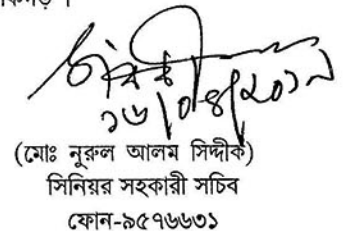 ১৬/০৪/২০১৭
(মোঃ নুরুল আলম সিদ্দীক)
সিনিয়র সহকারী সচিব
ফোন-৯৫৭৬৬৩১